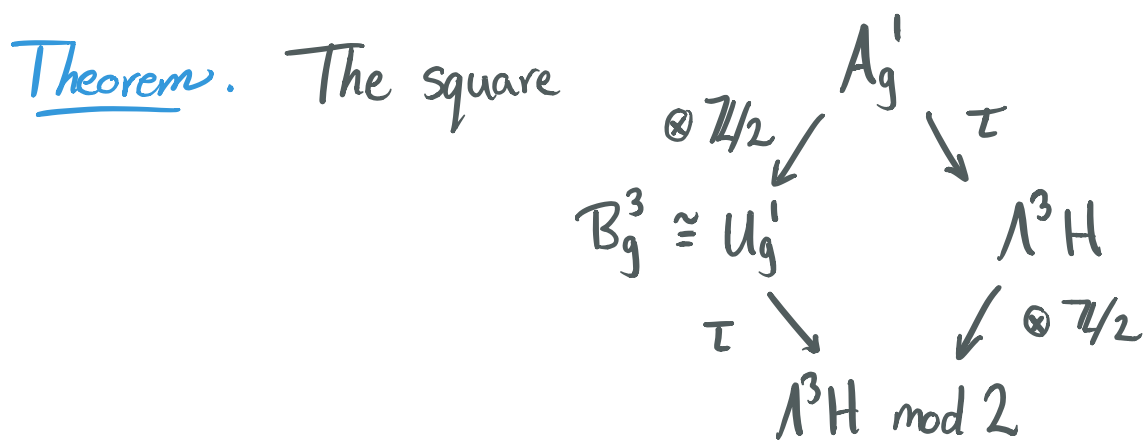 Theorem. The square
A_g^1
⊗ ℤ/2 τ
B_g^3 ≅ U_g^1 Λ^3 H
τ ⊗ ℤ/2
Λ^3 H mod 2